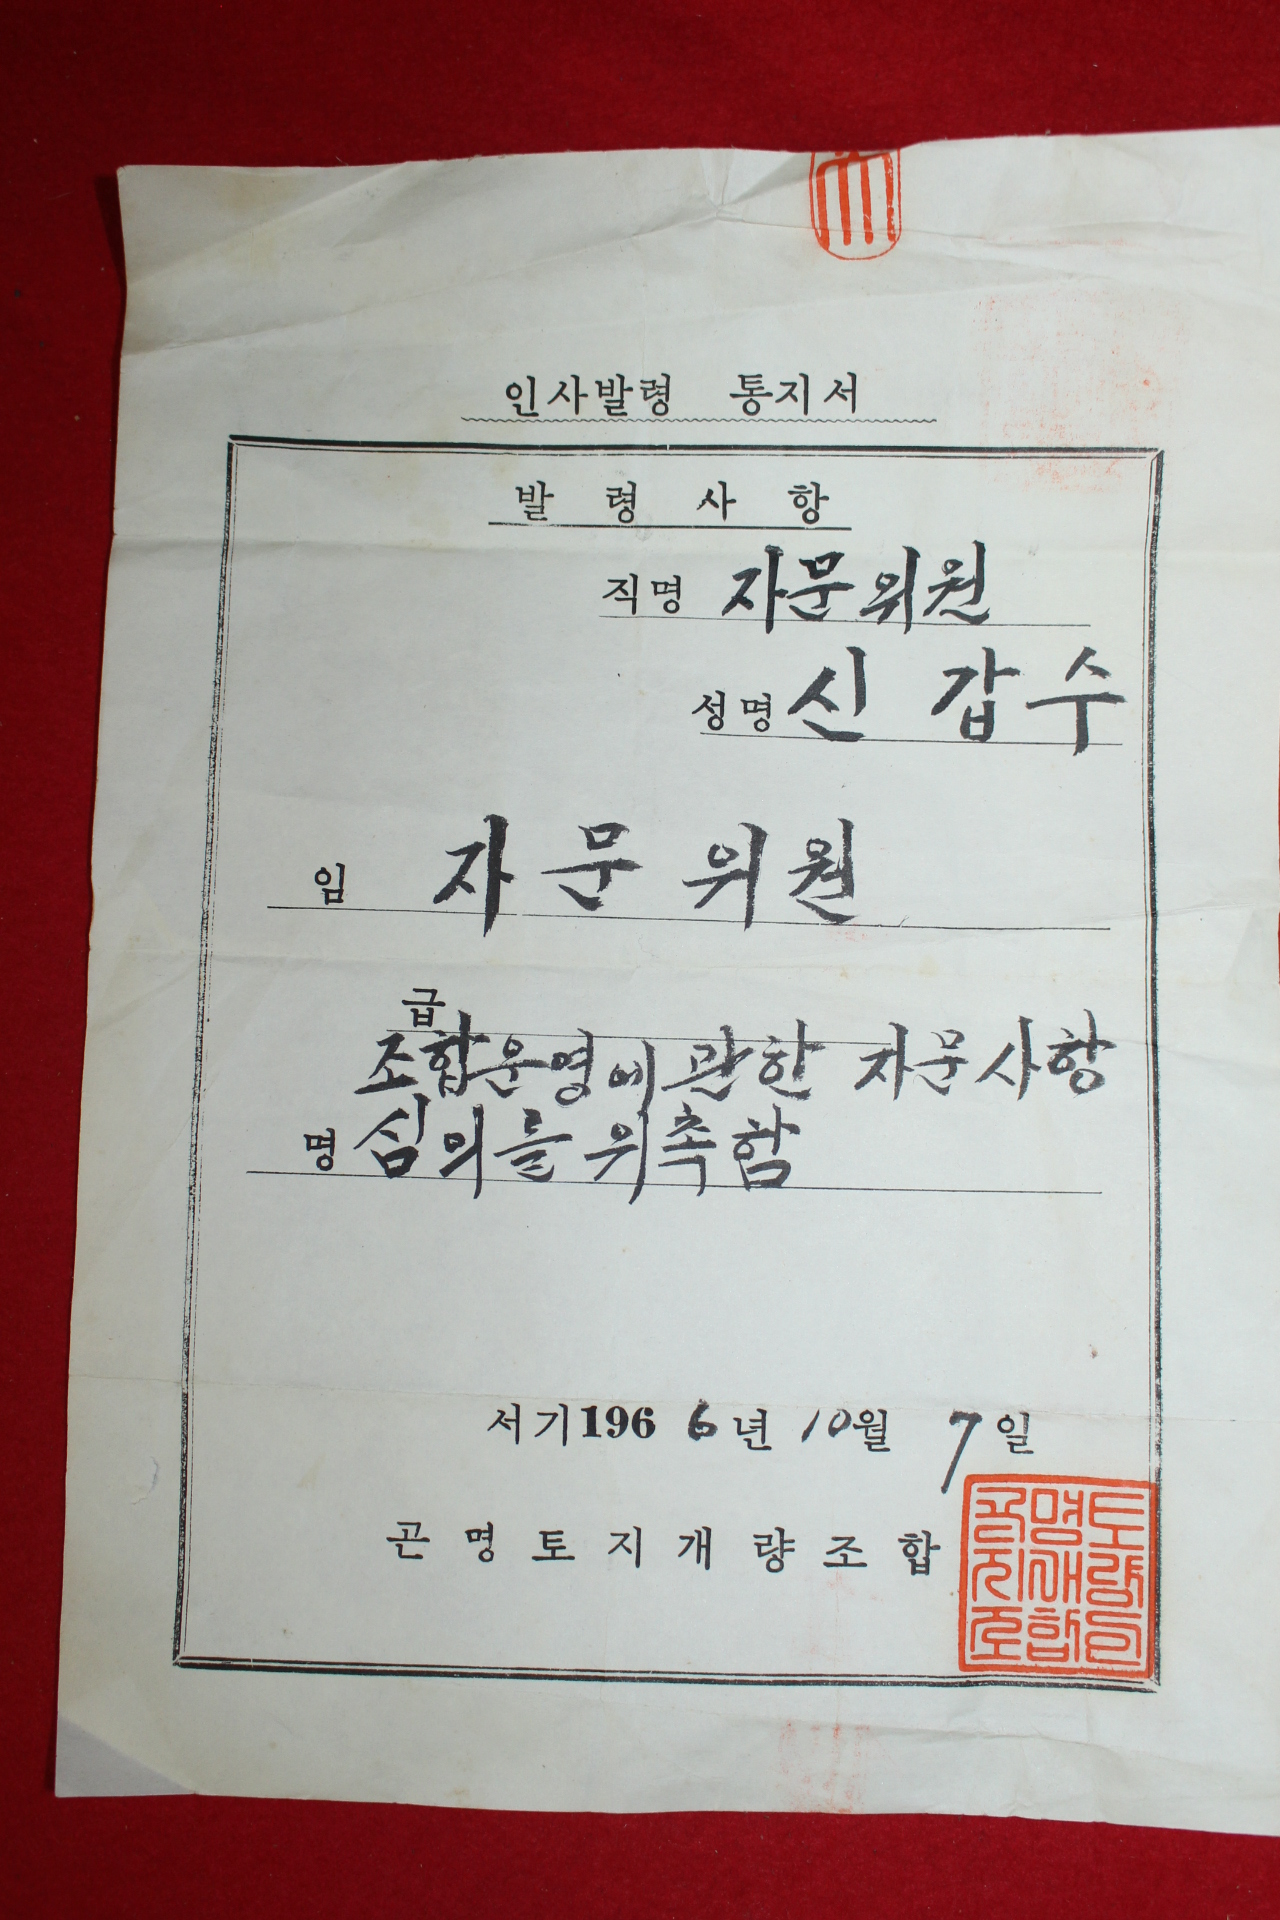 인사발령 통지서
발령사항
직명 자문위원
성명 신 갑 수
임 자문위원
급
조합운영에 관한 자문사항
명 심의를 위촉함
서기1966년 10월 7일
곤명토지개량조합